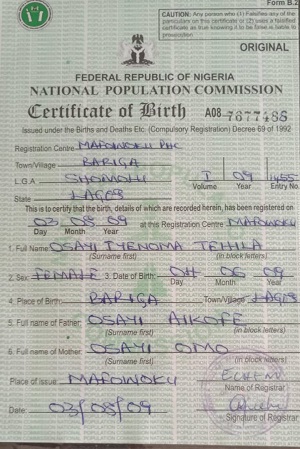 Form B.2
CAUTION: Any person who (1) Falsifies any of the
particulars on this certificate or (2) uses a falsified
certificate as true knowing it to be false is liable to
prosecution
ORIGINAL
FEDERAL REPUBLIC OF NIGERIA
NATIONAL POPULATION COMMISSION
Certificate of Birth A08 7877485
Issued under the Births and Deaths Etc. (Compulsory Registration) Decree 69 of 1992
Registration Centre MAFOWOKU PHC
Town/Village BARIGA
L.G.A SHOMOLU I 09 1455
Volume Year Entry No.
State LAGOS
This is to certify that the birth, details of which are recorded herein, has been registered on
03 08 09 at this Registration Centre MAFOWOKU
Day Month Year
1. Full Name OSAYI IYENOMA TEHILA
(Surname first) (in block letters)
2. Sex FEMALE 3. Date of Birth: 04 06 09
Day Month Year
4. Place of Birth: BARIGA Town/Village LAGOS
5. Full name of Father: OSAYI AIKOFE
(Surname first) (in block letters)
6. Full name of Mother: OSAYI OMO
(Surname first) (in block letters)
Place of issue MAFOWOKU
Name of Registrar
Date: 03/08/09
Signature of Registrar